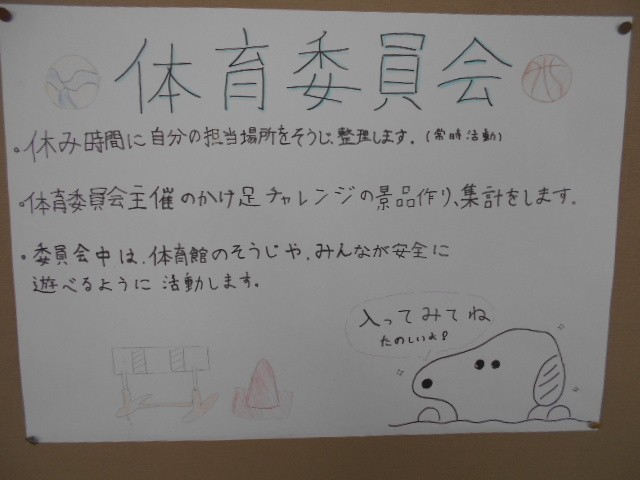 体育委員会
・休み時間に自分の担当場所をそうじ、整理します。(常時活動)
・体育委員会主催のかけ足チャレンジの景品作り、集計をします。
・委員会中は、体育館のそうじや、みんなが安全に
遊べるように活動します。
入ってみてね
たのしいよ?